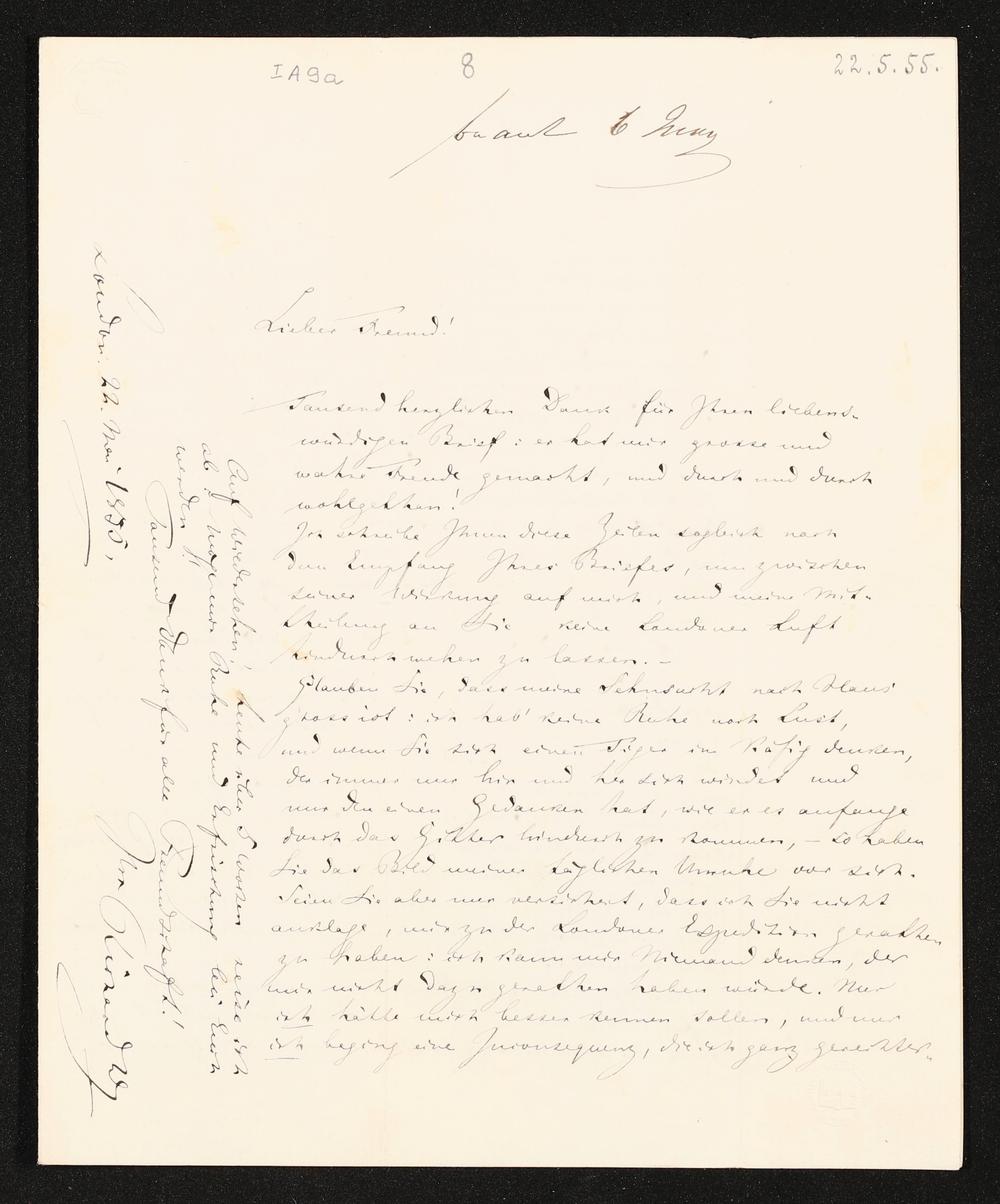 IA9a 8 22.5.55.
6 May
Lieber Freund!
Tausend herzlichen Dank für Ihren liebens-
würdigen Brief: er hat mir grosse und
wahre Freude gemacht, und durch und durch
wohlgethan!
Ich schreibe Ihnen diese Zeilen sogleich nach
dem Empfang Ihres Briefes, um zwischen
seiner Wirkung auf mich, und meine Mit-
theilung an Sie keine Londoner Luft
hindurch wehen zu lassen. –
Glauben Sie, dass meine Sehnsucht nach Haus
gross ist: ich hab' keine Ruhe noch Lust,
und wenn Sie sich einen Tiger im Käfig denken,
der immer nur hin und her sich windet und
nur den einen Gedanken hat, wie er es anfange
durch das Gitter hindurch zu kommen, – so haben
Sie das Bild meiner täglichen Unruhe vor sich.
Seien Sie aber nur versichert, dass ich Sie nicht
anklage, mir zu der Londoner Expedition gerathen
zu haben: ich kann mir Niemand denken, der
mir nicht dazu gerathen haben würde. Nur
ich hätte mich besser kennen sollen, und nur
ich beging eine Inconsequenz, die ich ganz gerechter-
Auf Wiedersehen! heute über 5 Wochen reise ich
ab: möge mir Ruhe und Erfrischung bei Euch
werden!!
Tausend Dank für alle Freundschaft!
Ihr Richard W
London. 22. Mai 1855.